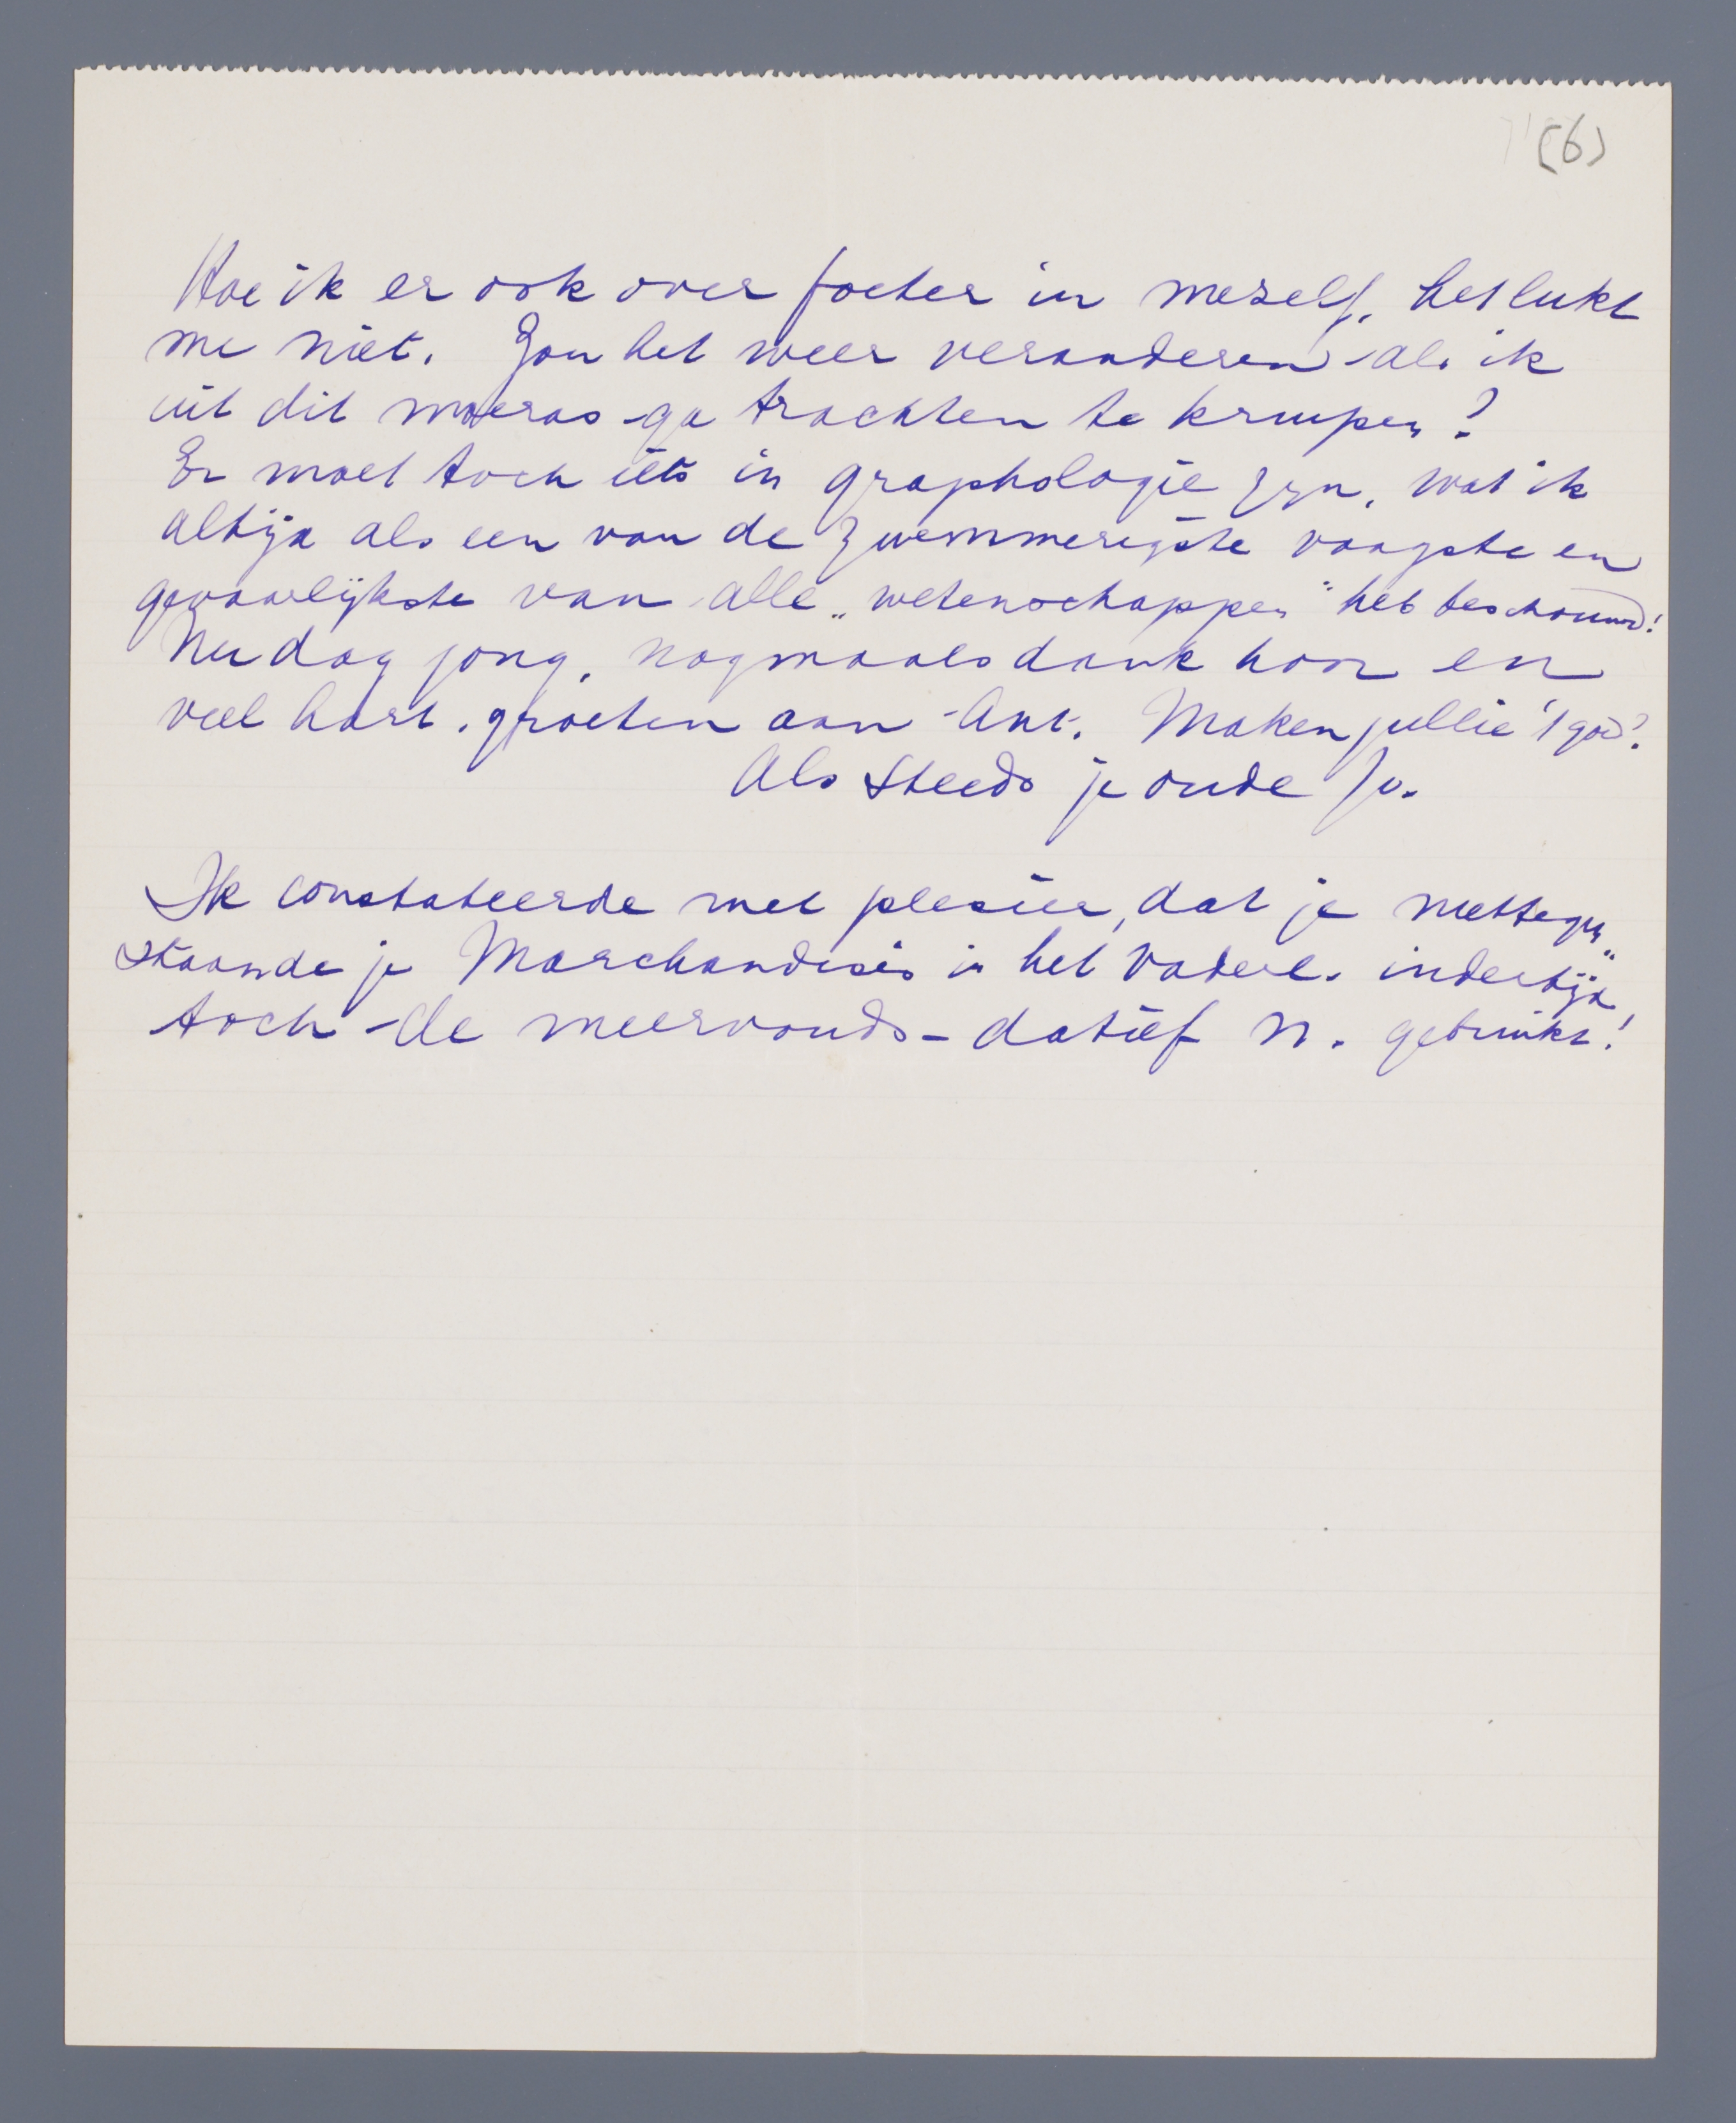 (6)
Hoe ik er ook over foeter in mezelf, het lukt
me niet. Zou het weer veranderen als ik
uit dit moeras ga trachten te kruipen?
Er moet toch iets in graphologie zijn, wat ik
altijd als een van de zwemmerigste vaagste en
gevaarlijkste van alle „wetenschappen" heb beschouwd!
Nu dag jong, nogmaals dank hoor en
veel hart. groeten aan Ant. Maken jullie 't goed?
Als steeds je oude Jo.
Ik constateerde met plezier, dat je niettegen„
staande je Marchandises in het Vaderl. indertijd
toch de meervouds-datief n. gebruikt!